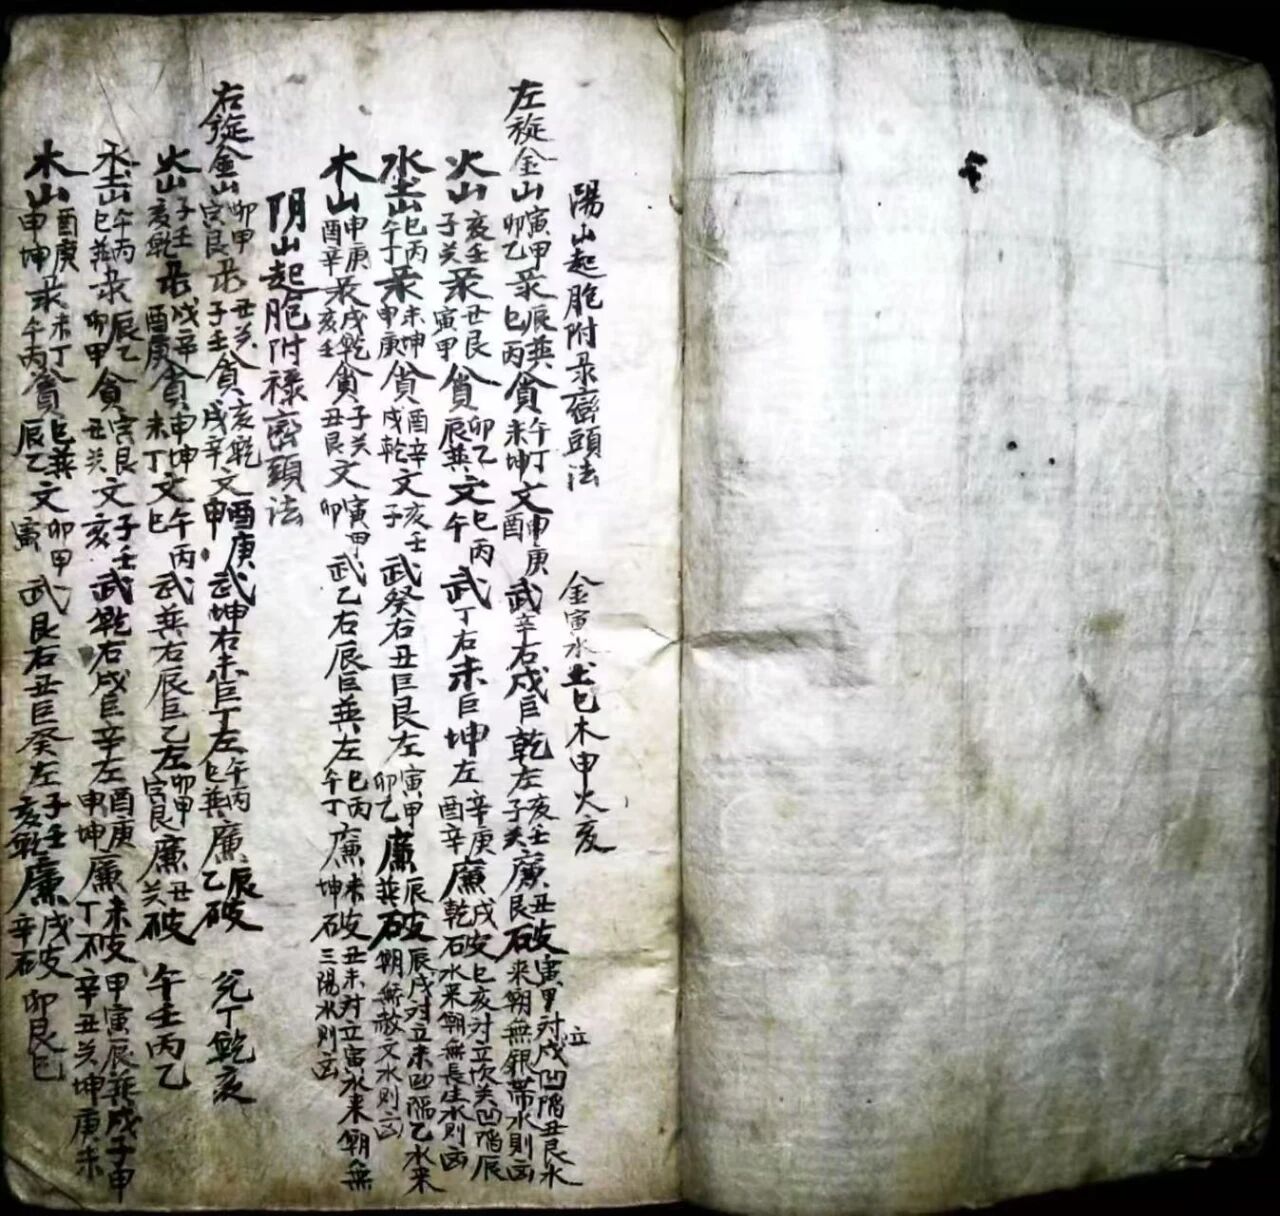 陽山起胞附录巒頭法 金寅水土巳木申火亥
左旋金山寅甲卯乙录辰巽巳丙貪午丁未坤文申庚酉武辛右戌巨乾左亥壬子癸廉丑艮破寅甲对立戌凹陷丑艮水来朝無銀帶水則凶
火山亥壬子癸录丑艮寅甲貪卯乙辰巽文巳丙午武丁右未巨坤左辛庚酉辛廉戌乾破巳亥对立次癸凹陷辰石水来朝無長生水則凶
水土山巳丙午子录未坤申庚貪酉辛戌乾文亥壬子武癸右丑巨艮左寅甲卯乙廉辰巽破辰戌对立未凹陷乙水来朝無赦文水則凶
木山申庚酉辛录戌乾亥壬貪子癸丑艮文寅甲卯武乙右辰巨巽左巳丙午丁廉未坤破丑未对立寅水来朝無三陽水則凶
阴山起胞附禄巒頭法
右旋金山卯甲寅艮录丑癸子壬貪亥乾戌辛文酉庚申武坤右未巨丁左午丙巳巽廉辰乙破 兑丁乾亥
火山子壬亥乾录戌辛酉庚貪申坤未丁文午丙巳武巽右辰巨乙左卯甲寅艮廉丑癸破 午壬丙乙
水土山午丙巳巽录辰乙卯甲貪寅艮丑癸文子壬亥武乾右戌巨辛左酉庚申坤廉未丁破 甲寅辰巽戌子申辛丑癸坤庚未
木山酉庚申坤录未丁午丙貪巳巽辰乙文卯甲寅武艮右丑巨癸左子壬亥乾廉戌辛破 卯艮巳